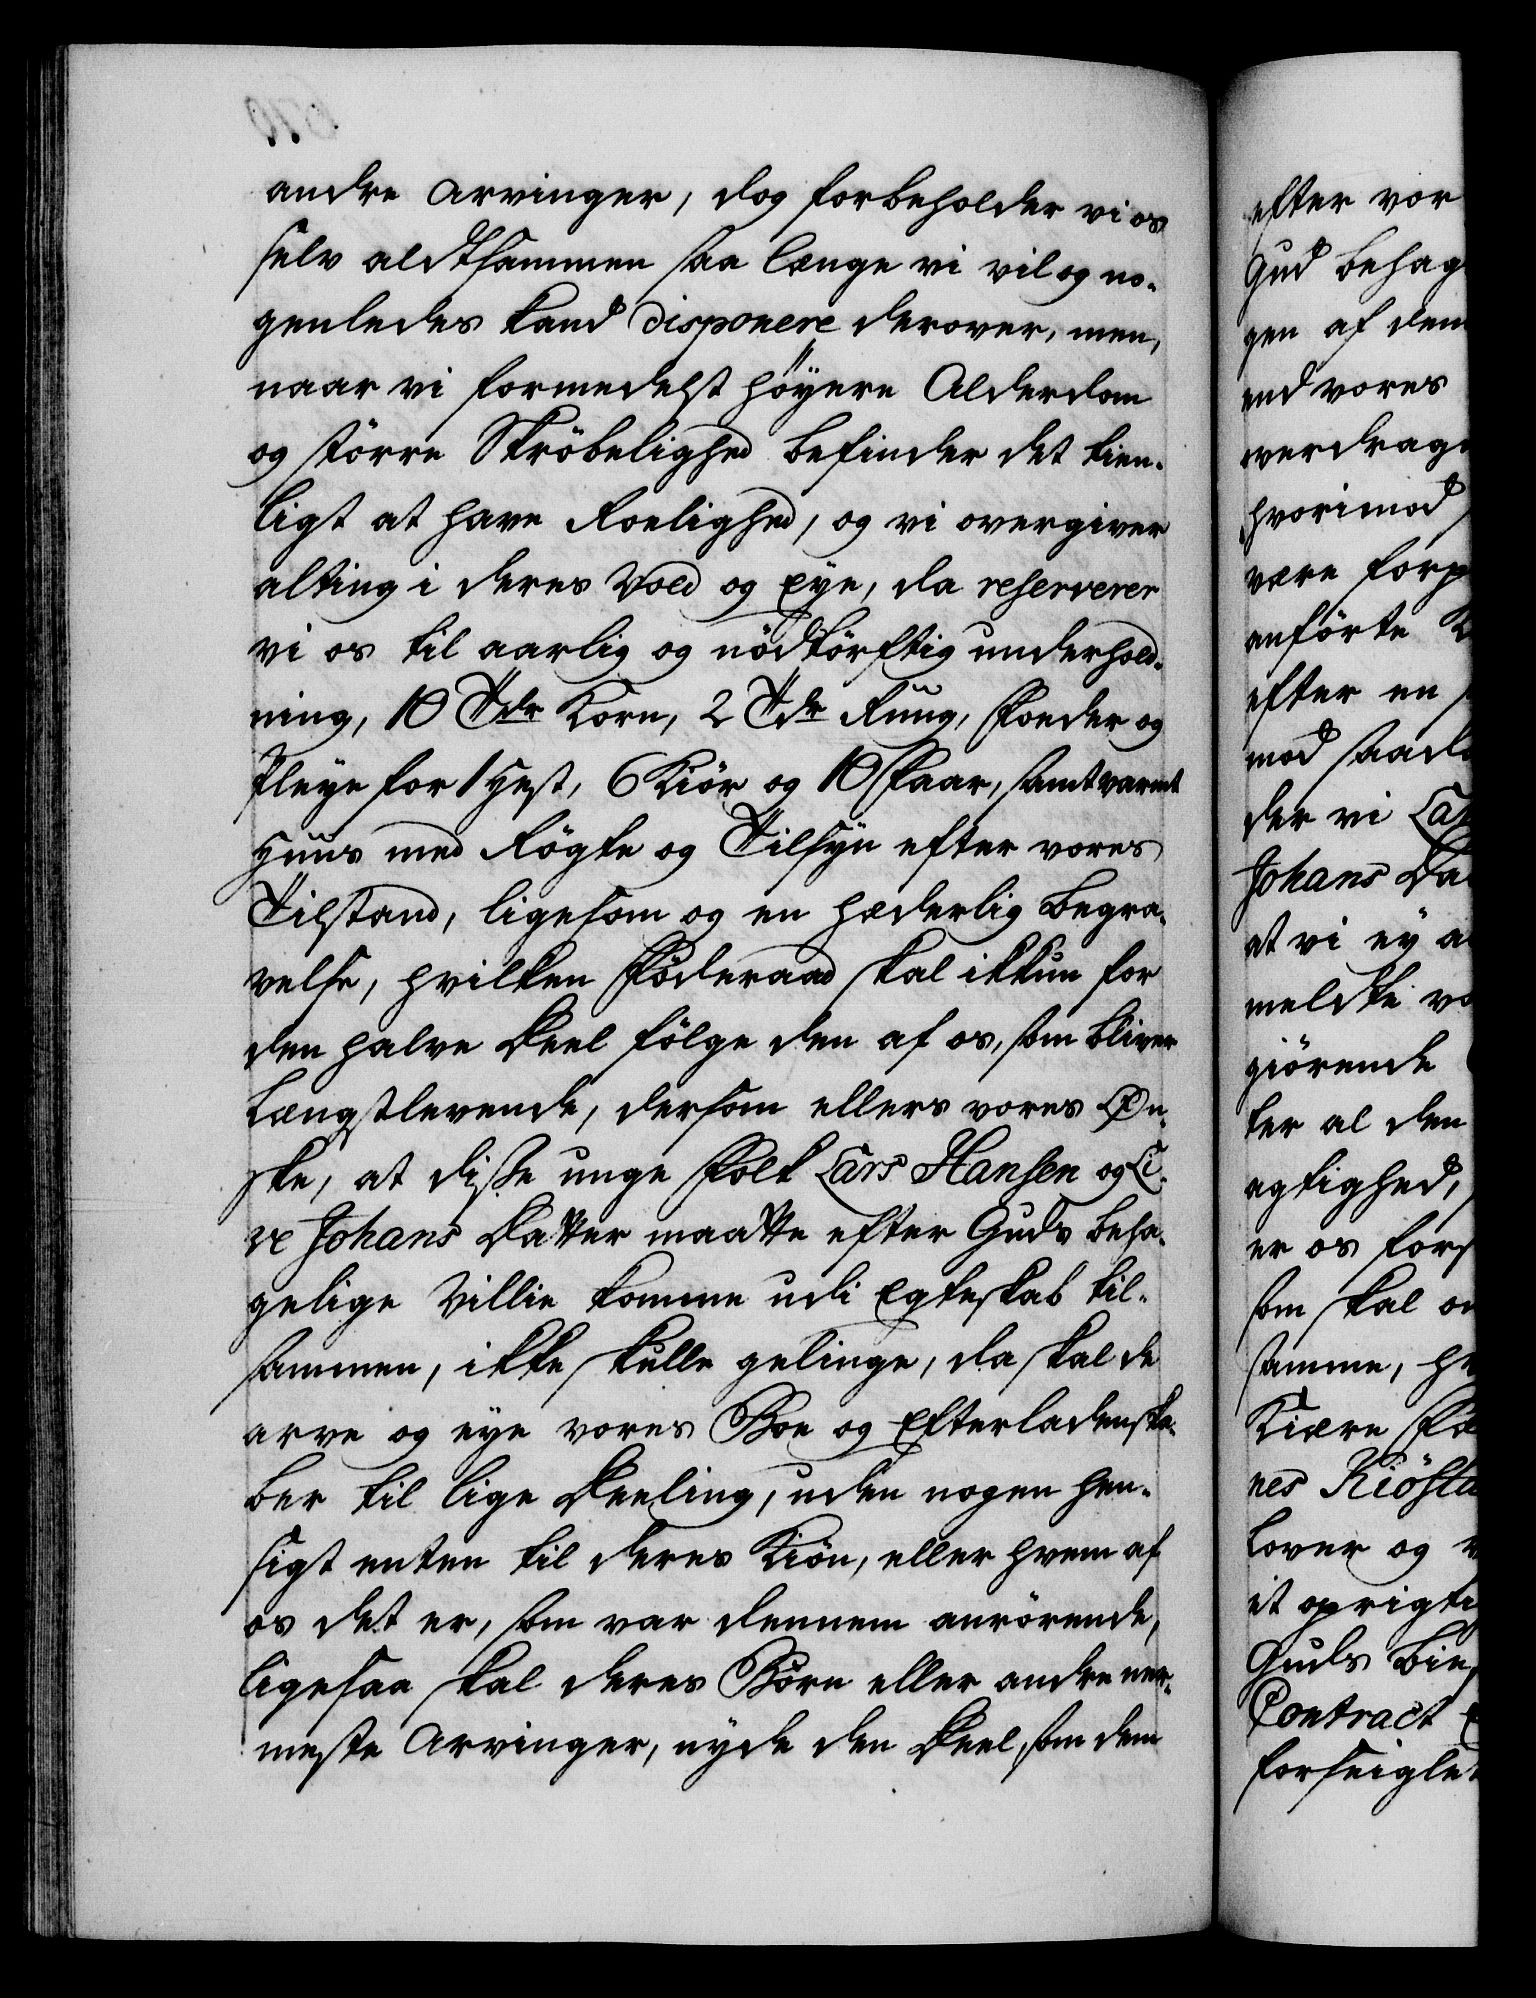 andre Arvinger, dog forbeholder vi os
selv aldtsammen saa længe vi vil og no-
genledes kand disponere derover, men,
naar vi formedelst höyere Alderdom
og större Skröbelighed befinder det tien-
ligt at have Roelighed, og vi overgiver
alting i deres Vold og Eye, da reserverer
vi os til aarlig og nödtörftig underhold-
ning, 10 Tdr Korn, 2 Tdr Ruug, Foeder og
Pleye for 1 Hest, 6 Kiör og 10 Faar, samt varmt
Huus med Rögte og Tilsyn efter vores
Tilstand, ligesom og en hæderlig Begra-
velse, hvilken Föderaad skal ikkun for
den halve Deel fölge den af os, som bliver
Længstlevende, dersom ellers vores Øn-
ske, at disse unge Folk Lars Hansen og Li-
ve Johans Datter maatte efter Guds beha-
gelige Villie komme udi Egteskab til-
sammen, ikke skulle gelinge, da skal de
arve og eye vores Boe og Efterladenska-
ber til lige Deeling, uden nogen Hen-
sigt enten til deres Kiön, eller hvem af
os det er, som var dennem anrörende,
ligesaa skal deres Börn eller andre nær-
meste Arvinger, nyde den Deel, som dem
efter vor
Gud behag
gen af dem
end vores
overdrage
hvorimod
være forp
anförte K
efter en
mod saad
der vi Lar
Johans Da
at vi ey a
meldte vo
giörende
ter al den
agtighed,
er os fors
som skal o
samme, h
Kiære Fo
nes Kiösta
lover og v
it oprigti
Guds Bi
Contract
forseigle